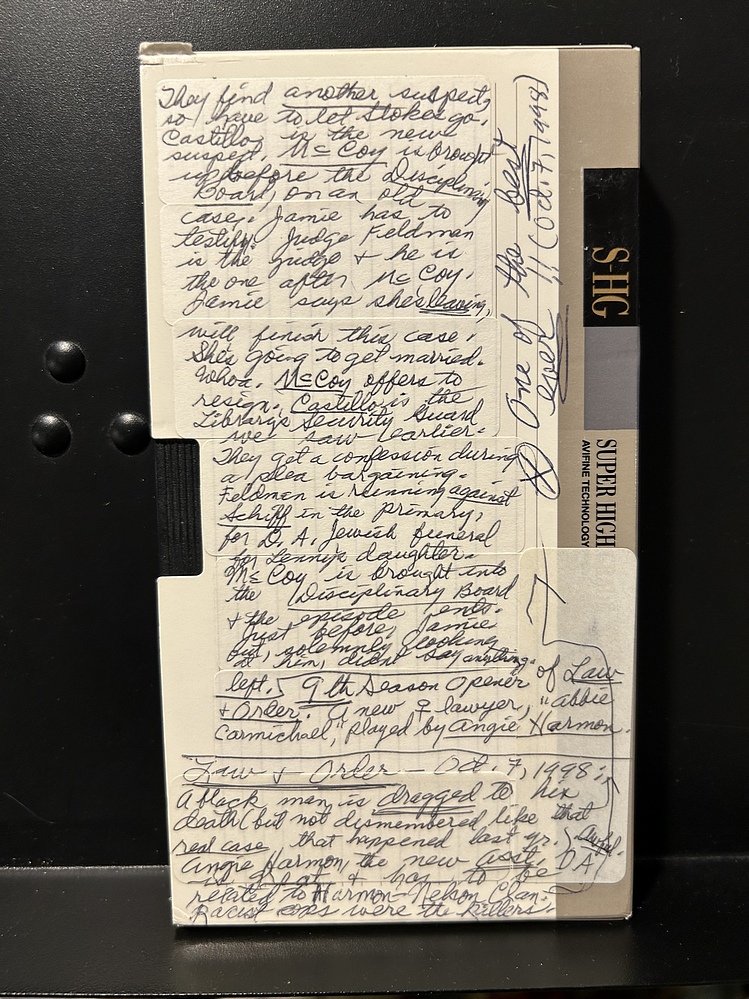 They find another suspect,
so have to let Stokes go.
Castillo is the new
suspect. McCoy is brought
up before the Disciplinary
Board, on an old
case. Jamie has to
testify. Judge Feldman
is the judge & he is
the one after McCoy.
Jamie says she's leaving,
will finish this case.
She's going to get married.
Whoa. McCoy offers to
resign. Castillo is the
Library's Security Guard
we saw earlier.
They get a confession during
a plea bargaining.
Feldman is running against
Schiff in the primary,
for D.A. Jewish funeral
for Lennie's daughter.
McCoy is brought into
the Disciplinary Board
& the episode ends.
Just before, Jamie
but, solemnly looking
at him, didn't say anything
left. 9th Season Opener of Law
& Order. A new ♀ lawyer, "Abbie
Carmichael," played by Angie Harmon.
Law & Order - Oct. 7, 1998:
A black man is dragged to his
death (but not dismembered like that
real case, that happened last yr. Awful.
Angie Harmon, the new asst. DA
is great & has to be
related to Harmon-Nelson Clan.
Racist cops were the killers.
One of the best
ever!! (Oct. 7, 1998)
S-HG
SUPER HIGH
AVIFINE TECHNOLOGY